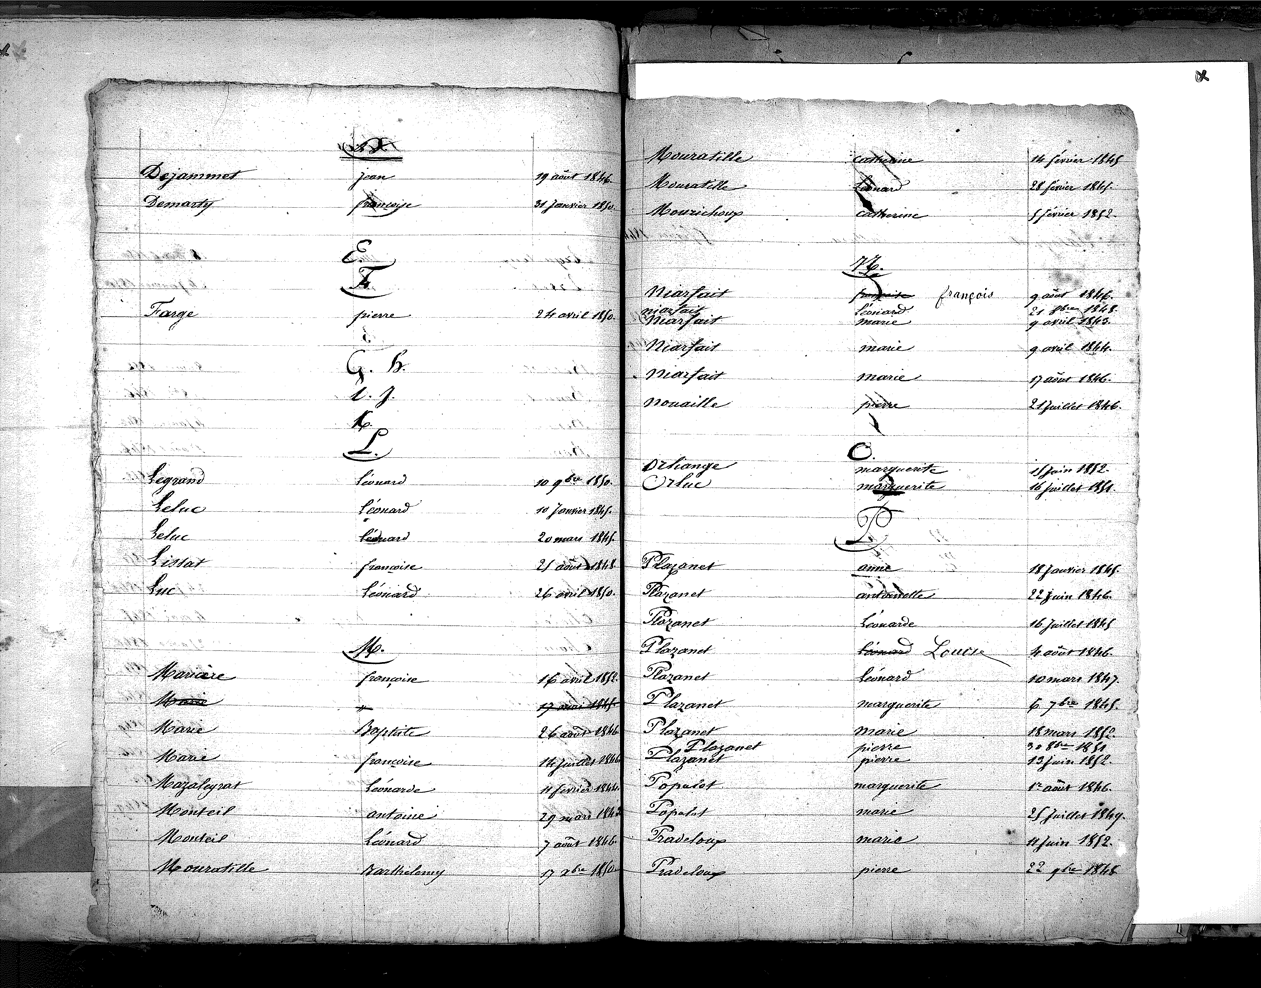 D.
Dejammet jean 19 août 1846.
Demarty françoise 31 Janvier 1850.
E.
F.
Farge pierre 24 avril 1850.
G. h.
I. J.
K.
L.
Legrand léonard 10 9bre 1850.
Leluc léonard 10 Janvier 1845.
Leluc léonard 20 mars 1845.
Lissat françoise 21 août 1848
Luc léonard 26 avril 1850.
M.
Maviere françoise 16 avril 1852.
Marie " 17 mai 1845.
Marie Baptiste 26 août 1846
Marie françoise 14 juillet 1846
Mazaleyrat Léonarde 11 février 1844.
Monteil antoine 29 mars 1842
Monteil léonard 7 août 1846.
Mouratille Barthélemy 17 xbre 1850.
Mouratille catherine 14 février 1845
Mouratille Léonard 28 février 1845.
Mourichoux catherine 5 février 1852.
N.
Niarfait françoise françois 9 août 1846.
niarfait léonard 21 8bre 1848.
Niarfait marie 9 avril 1843.
Niarfait marie 9 avril 1844.
Niarfait marie 17 août 1846.
Nouaille pierre 21 Juillet 1846.
O.
Orliange marguerite 15 juin 1852.
Orluc marguerite 16 juillet 1851.
P.
Plazanet anne 18 Janvier 1845.
Plazanet antoinette 22 Juin 1846.
Plazanet Léonarde 16 Juillet 1845
Plazanet léonard Louise 4 août 1846.
Plazanet léonard 10 mars 1847.
Plazanet marguerite 6 7bre 1845.
Plazanet marie 18 mars 1852.
Plazanet pierre 30 8bre 1851
Plazanet pierre 13 juin 1852.
Popalot marguerite 1er août 1846.
Popalot marie 25 Juillet 1849.
Pradeloux marie 11 Juin 1852.
Pradeloux pierre 22 9bre 1848